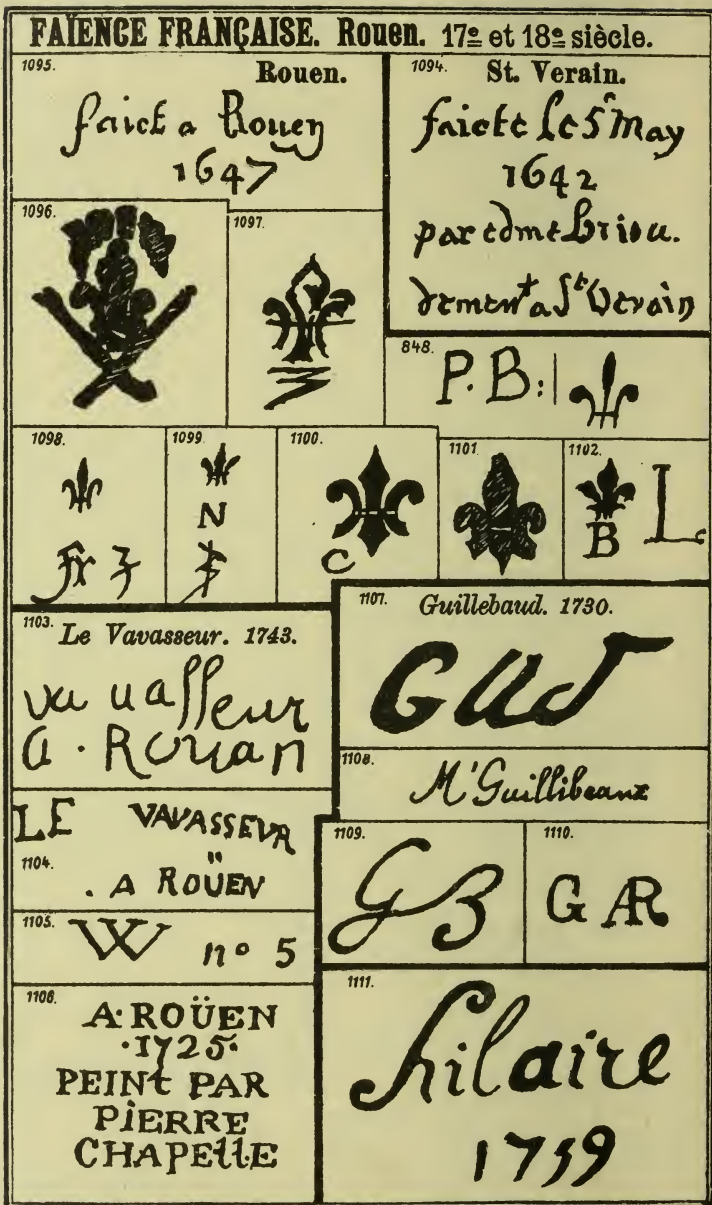 FAÏENCE FRANÇAISE. Rouen. 17e et 18e siècle.
1095.
Rouen.
faict a Rouen
1647
1094.
St. Verain.
faicte le 5e May
1642
par edme Briou.
dement a St Verain
1096.
1097.
848.
P. B:
1098.
1099.
N
1100.
C
1101.
1102.
B L
1103.
Le Vavasseur. 1743.
va uasseur
a . Rouan
LE VAVASSEVR
1104.
. A ROÜEN
1105.
W no 5
1106.
A·ROÜEN
·1725·
PEINt PAR
PiERRE
CHAPEllE
1107.
Guillebaud. 1730.
1108.
Mr Guillibeaux
1109.
GB
1110.
G AR
1111.
hilaire
1759